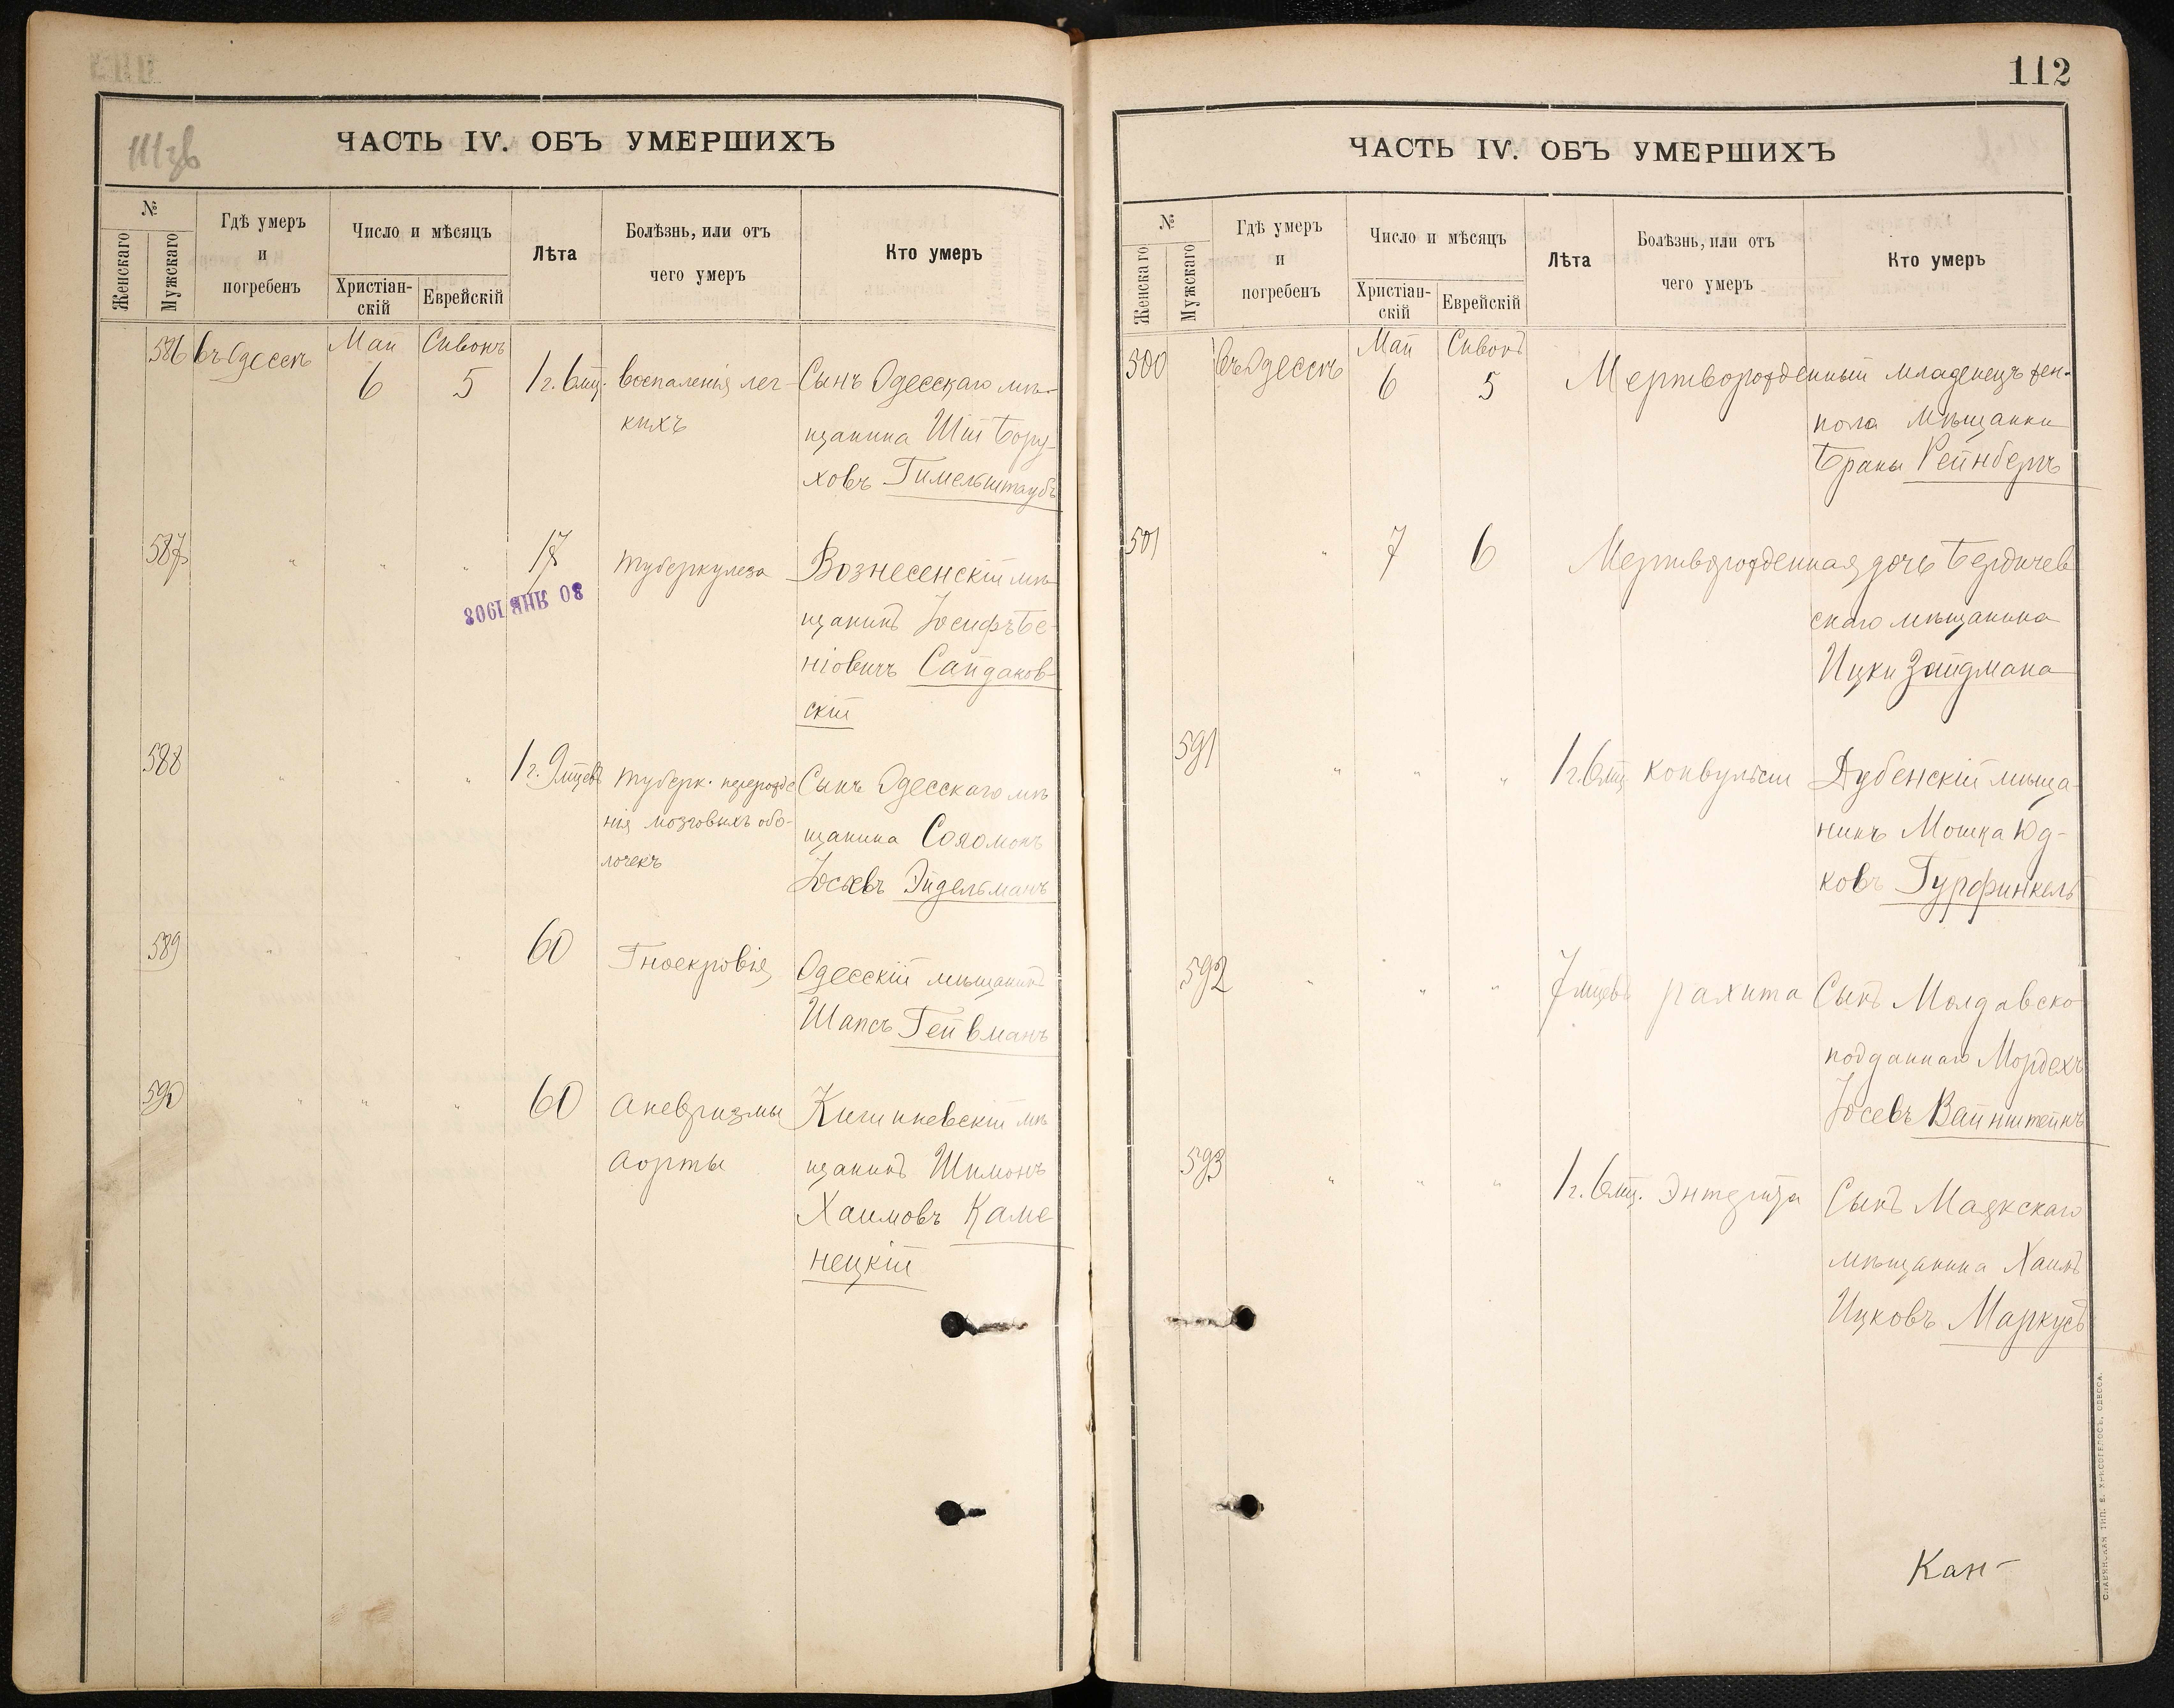 111 зв
ЧАСТЬ IV. ОБЪ УМЕРШИХЪ
№
Женскаго
Мужскаго
Гдѣ умеръ
и
погребенъ
Число и мѣсяцъ
Христіан-
скій
Еврейскій
Лѣта
Болѣзнь, или отъ
чего умеръ
Кто умеръ
586 въ Одессѣ Май 6 Сивонъ 5 1 г. 6 мц. воспаленія лег- Сынъ Одесскаго мѣ-
кихъ щанина Шіи Бору-
ховъ Гимельштаубъ
587 " " " 17 туберкулеза Вознесенскій мѣ-
щанинъ Іосифъ Бе-
ніовичъ Сайдаков-
скій
30 ЯНВ 1903
588 " " " 1 г. 9 мцевъ туберк. перерожде Сынъ Одесскаго мѣ
нія мозговыхъ обо- щанина Соломонъ
лочекъ Іосевъ Эйдельманъ
589 " " " 60 Гноекровія Одесскій мѣщанинъ
Шапсъ Гейвманъ
590 " " " 60 Аневризмы Кишиневскій мѣ
Аорты щанинъ Шимонъ
Хаимовъ Каме
нецкій
112
ЧАСТЬ IV. ОБЪ УМЕРШИХЪ
№
Женскаго
Мужскаго
Гдѣ умеръ
и
погребенъ
Число и мѣсяцъ
Христіан-
скій
Еврейскій
Лѣта
Болѣзнь, или отъ
чего умеръ
Кто умеръ
500 въ Одессѣ Май 6 Сивонъ 5 Мертворожденный младенецъ жен.
пола мѣщанки
Браны Рейнбергъ
501 " 7 6 Мертворожденная дочь Бердичев
скаго мѣщанина
Ицки Зайдмана
591 " " " 1 г. 6 мц конвульсіи Дубенскій мѣща-
нинъ Мошка Юд-
ковъ Гурфинкель
592 " " " 7 мцевъ рахита Сынъ Молдавско
подданнаго Мордехъ
Іосевъ Вайнштейнъ
593 " " " 1 г. 6 мц. Энтерита Сынъ Маякскаго
мѣщанина Хаимъ
Ицковъ Маркусъ
Кан-
СЛАВЯНСКАЯ ТИП. Е. ХРИСОГЕЛОСЪ, ОДЕССА.